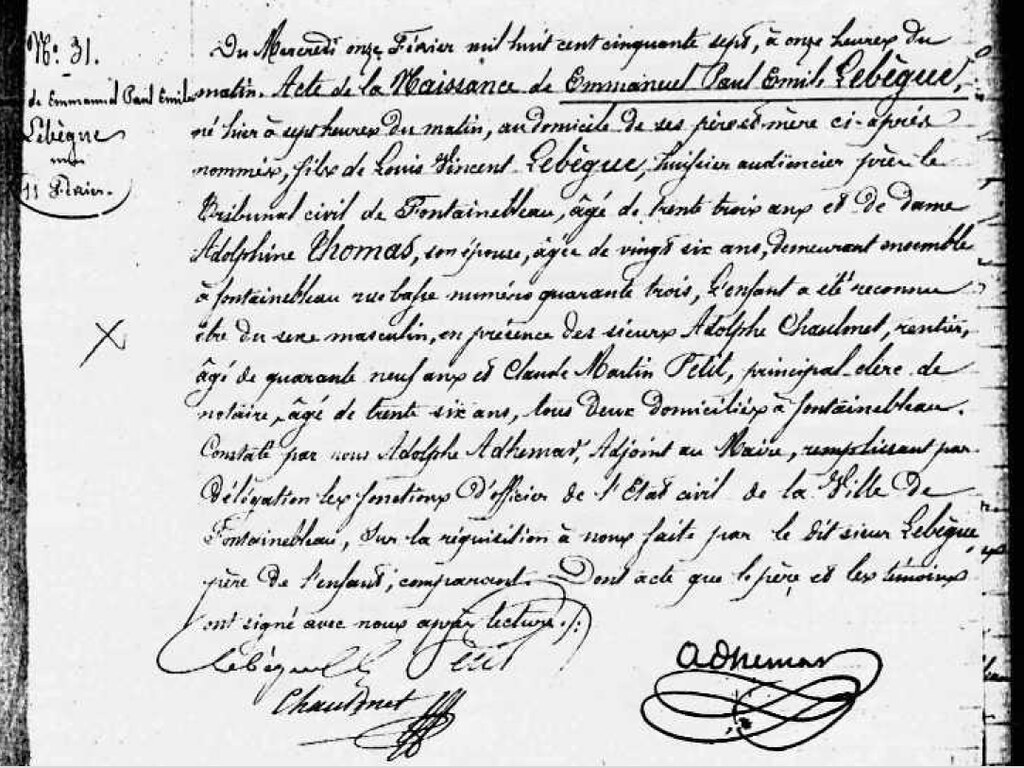 N.º 31.
de Emmanuel Paul Emile
Lebègue
11 Février.
Du Mercredi onze Février mil huit cent cinquante sept, à onze heures du
matin. Acte de la Naissance de Emmanuel Paul Emile Lebègue,
né hier à sept heures du matin, au domicile de ses père et mère ci-après
nommés, fils de Louis Vincent Lebègue, huissier audiencier près le
Tribunal civil de Fontainebleau, âgé de trente trois ans et de dame
Adolphine Thomas, son épouse, âgée de vingt six ans, demeurant ensemble
à fontainebleau rue basse numéro quarante trois, L'enfant a été reconnu
être du sexe masculin, en présence des sieurs Adolphe Chaulmet, rentier,
âgé de quarante neuf ans et Claude Martin Petit, principal clerc de
notaire, âgé de trente six ans, tous deux domiciliés à fontainebleau.
Constaté par nous Adolphe Adhemar, Adjoint au Maire, remplissant par
délégation les fonctions d'officier de l'Etat civil de la Ville de
Fontainebleau, Sur la réquisition à nous faite par le dit sieur Lebègue,
père de l'enfant, comparant. Dont acte que le père et les témoins
ont signé avec nous après lecture./:
Lebègue Petit
Adhemar